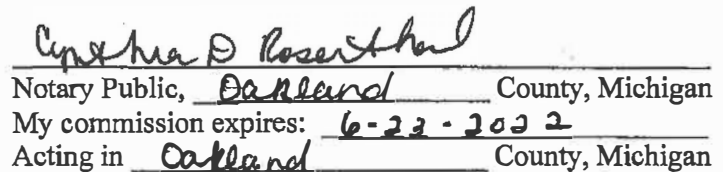 Cynthia D Rosenthal
Notary Public, Oakland County, Michigan
My commission expires: 6-23-2022
Acting in Oakland County, Michigan